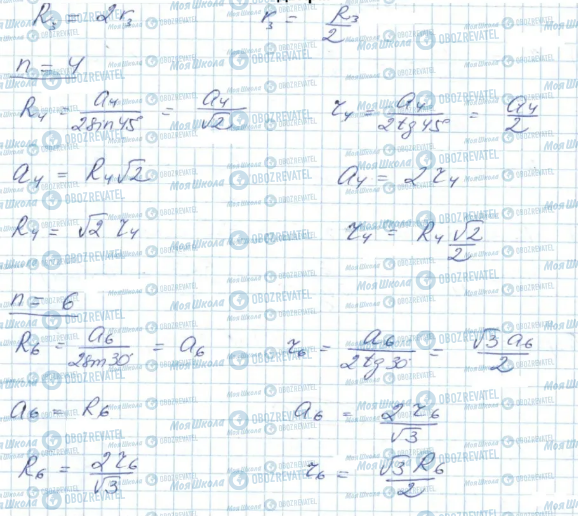 R₃ = 2r₃ r₃ = R₃/2
n = 4
R₄ = a₄/2sin45° = a₄/√2 r₄ = a₄/2tg45° = a₄/2
a₄ = R₄√2 a₄ = 2r₄
R₄ = √2 r₄ r₄ = R₄ √2/2
n = 6
R₆ = a₆/2sin30° = a₆ r₆ = a₆/2tg30° = √3 a₆/2
a₆ = R₆ a₆ = 2r₆/√3
R₆ = 2r₆/√3 r₆ = √3 R₆/2
Моя Школа OBOZREVATEL